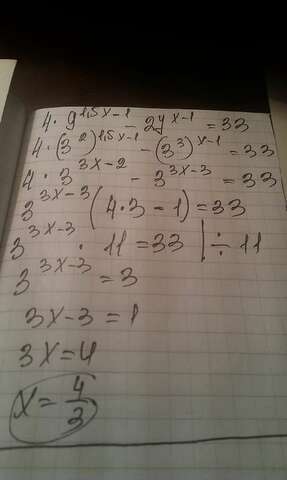 4·9^{1,5x-1} - 27^{x-1} = 33
4·(3^2)^{1,5x-1} - (3^3)^{x-1} = 33
4·3^{3x-2} - 3^{3x-3} = 33
3^{3x-3}(4·3-1) = 33
3^{3x-3} · 11 = 33 | ÷ 11
3^{3x-3} = 3
3x-3 = 1
3x = 4
x = 4/3